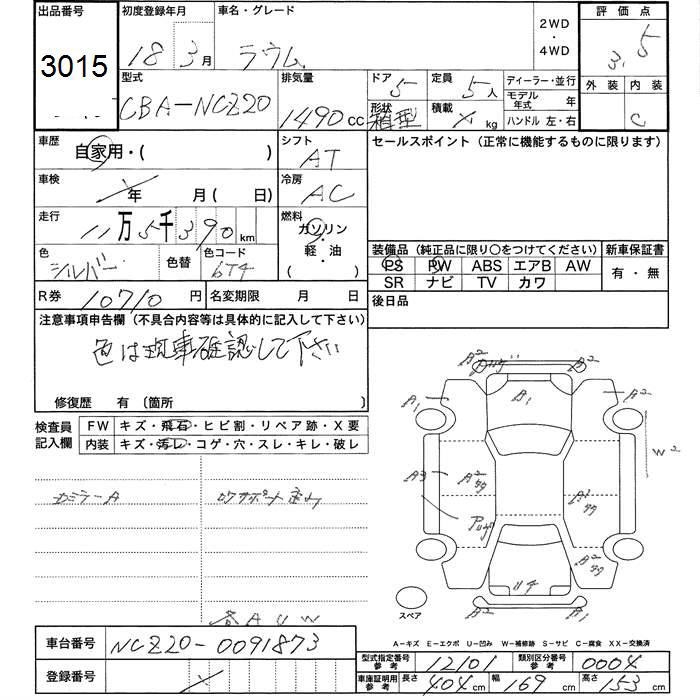 出品番号 初度登録年月 車名・グレード 2WD・4WD 評価点
3015 18 3月 ラウム 3.5
型式 排気量 ドア 5 定員 5人 ディーラー・並行 外装 内装
CBA-NCZ20 1490cc 形状 箱型 積載 kg モデル年式 年 C
ハンドル 左・右
車歴 自家用・( ) シフト AT セールスポイント(正常に機能するものに限ります)
車検 年 月(日) 冷房 AC
走行 11万5千390km 燃料 ガソリン・軽・油 ( )
色 シルバー 色替 色コード 6T4 装備品(純正品に限り○をつけてください) 新車保証書
PS PW ABS エアB AW 有・無
SR ナビ TV カワ
R券 10710円 名変期限 月 日 後日品
注意事項申告欄(不具合内容等は具体的に記入して下さい)
色は現車確認して下さい
修復歴 有 (箇所
検査員記入欄 FW キズ・飛石・ヒビ割・リペア跡・X要
内装 キズ・汚レ・コゲ・穴・スレ・キレ・破レ
A2 A2
A1 A1 A2
W2
A3
U4
A1
スペア
カミラーA
A-キズ E-エクボ U-凹み W-補修跡 S-サビ C-腐食 XX-交換済
車台番号 NCZ20-0091873
型式指定番号参考 12101 類別区分番号参考 0004
登録番号
車庫証明用参考 長さ 404cm 幅 169cm 高さ 153cm